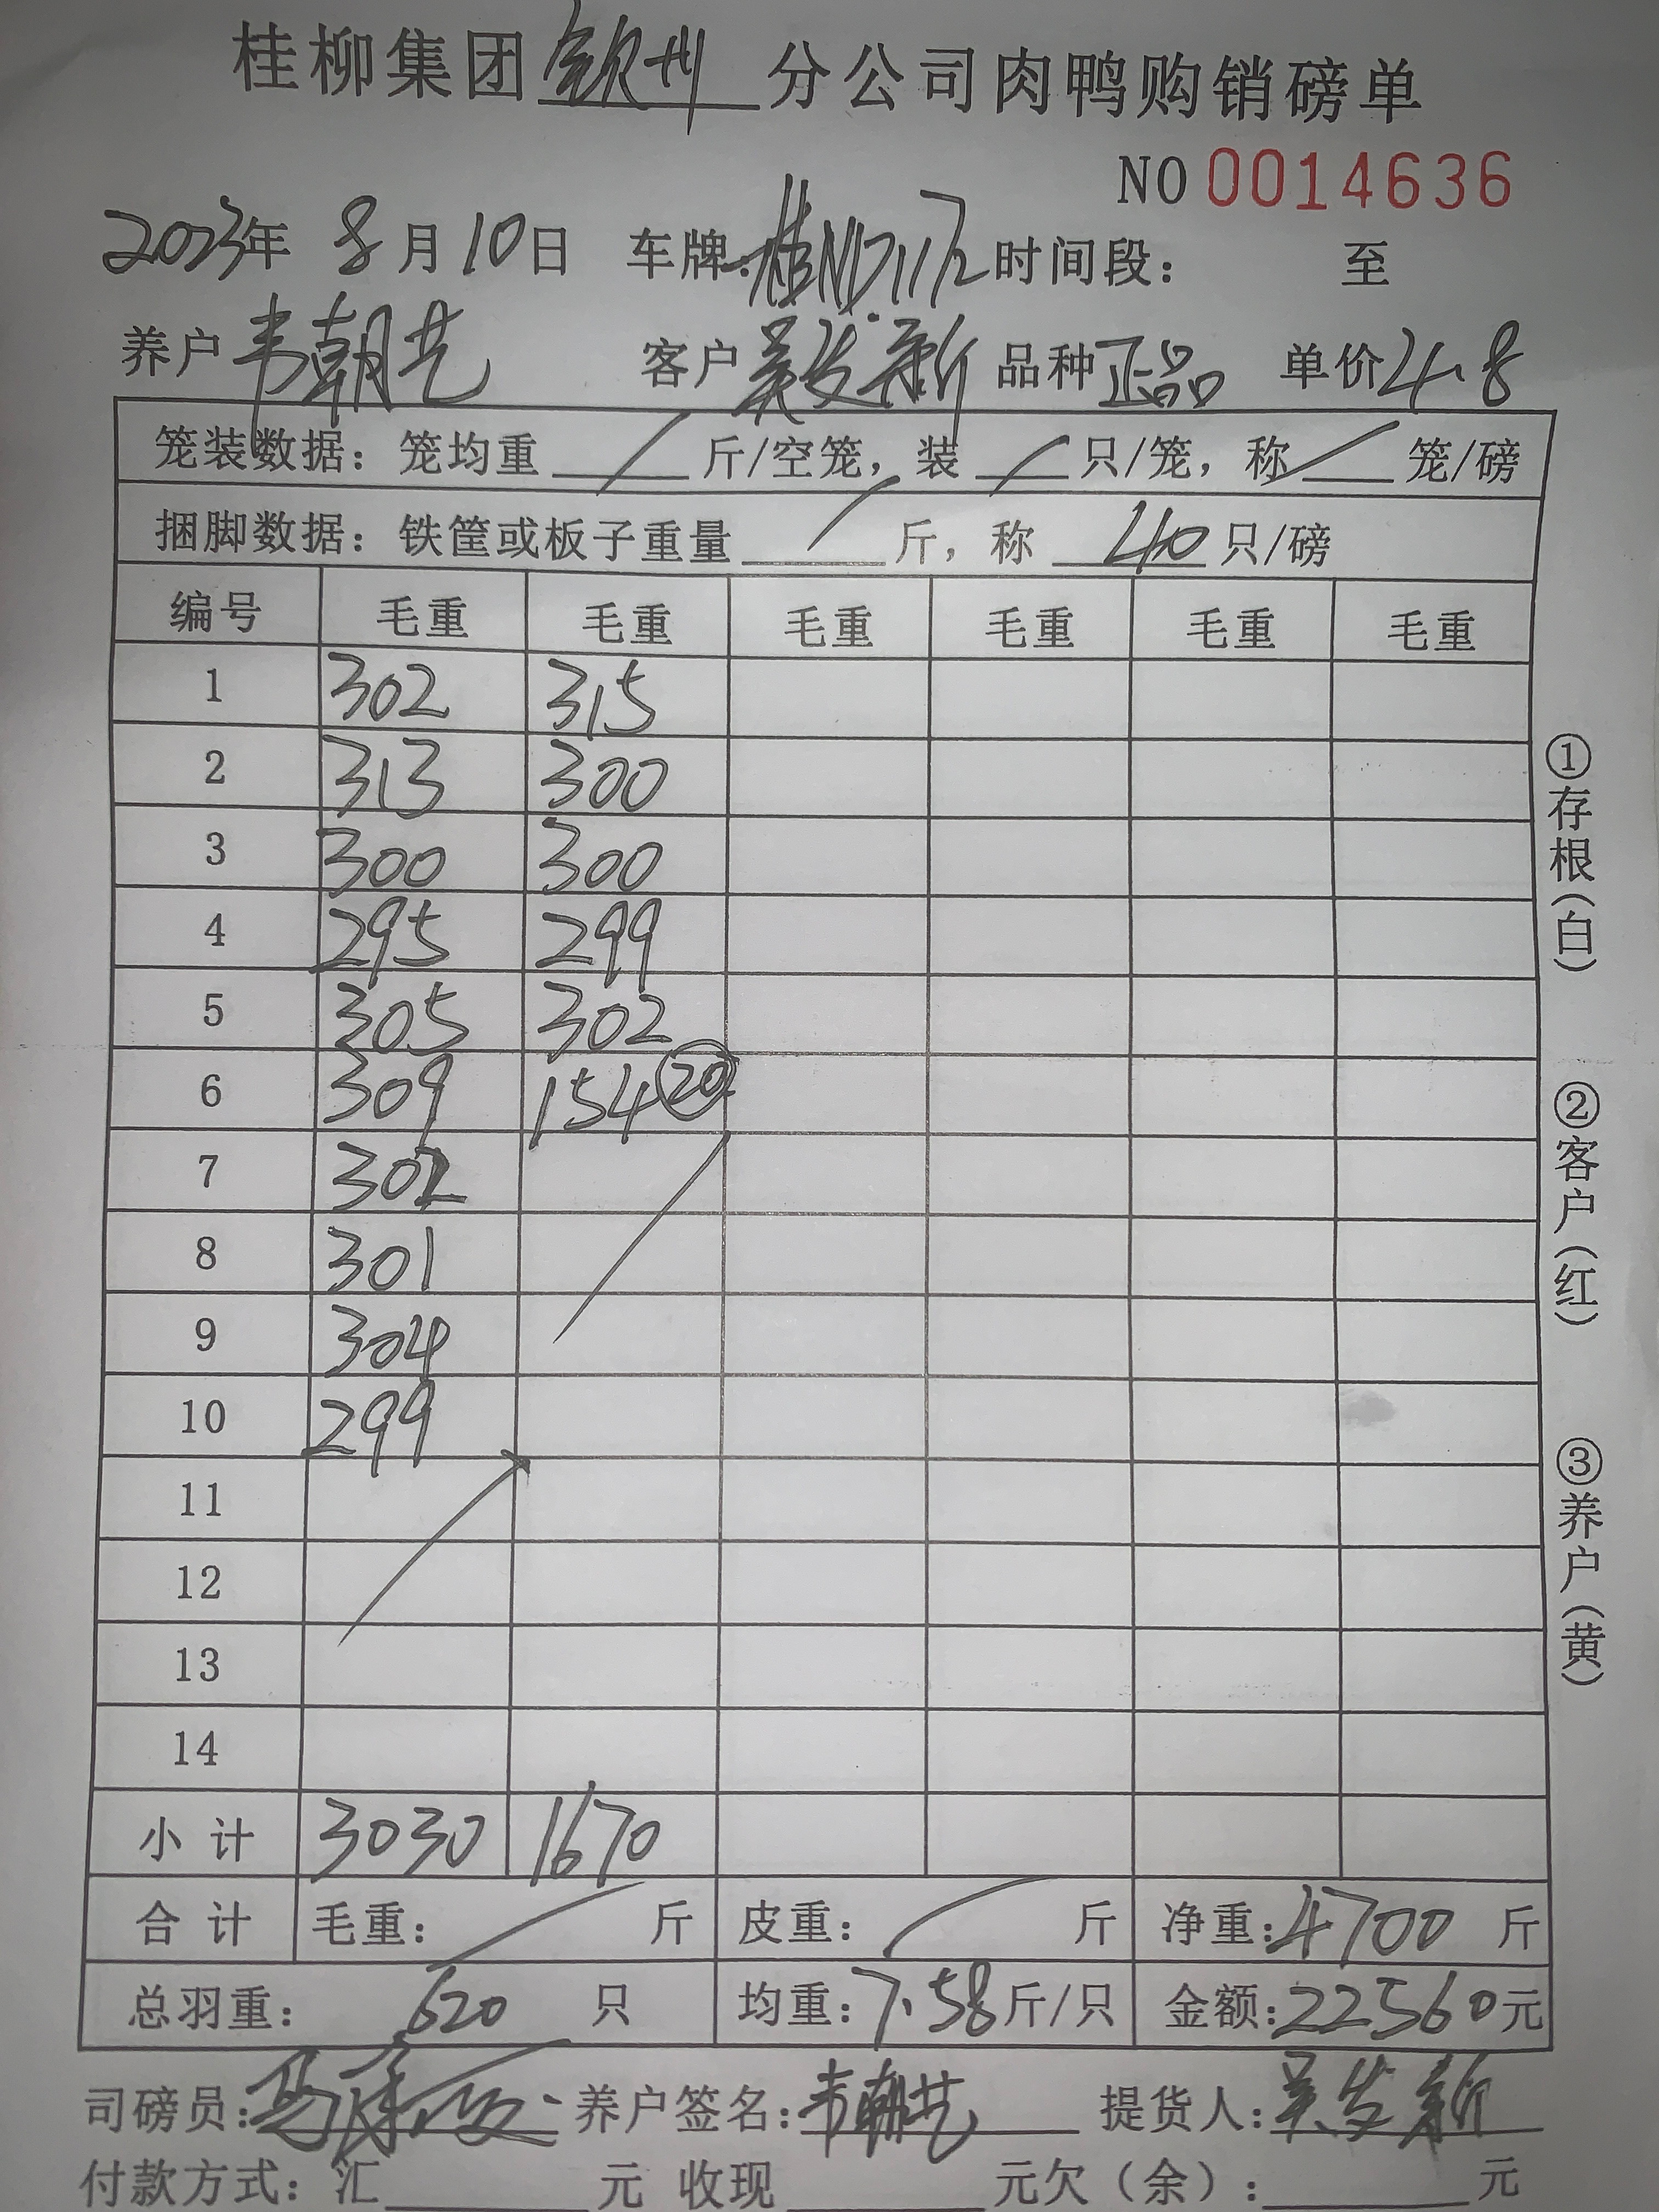 桂柳集团钦州分公司肉鸭购销磅单
NO 0014636
2023年 8月10日 车牌:桂ND1172 时间段: 至
养户 韦朝艺 客户 吴发新 品种 正品 单价 4.8
笼装数据: 笼均重 / 斤/空笼, 装 / 只/笼, 称 / 笼/磅
捆脚数据: 铁筐或板子重量 / 斤, 称 40 只/磅
编号 毛重 毛重 毛重 毛重 毛重 毛重
1 302 315
2 313 300
3 300 300
4 295 299
5 305 302
6 309 154 20
7 302
8 301
9 304
10 299
11
12
13
14
小计 3030 1670
合计 毛重: / 斤 皮重: / 斤 净重:4700 斤
总羽重: 620 只 均重:7.58斤/只 金额:22560元
司磅员: 养户签名:韦朝艺 提货人:吴发新
付款方式: 汇 元 收现 元欠(余): 元
①存根(白)
②客户(红)
③养户(黄)